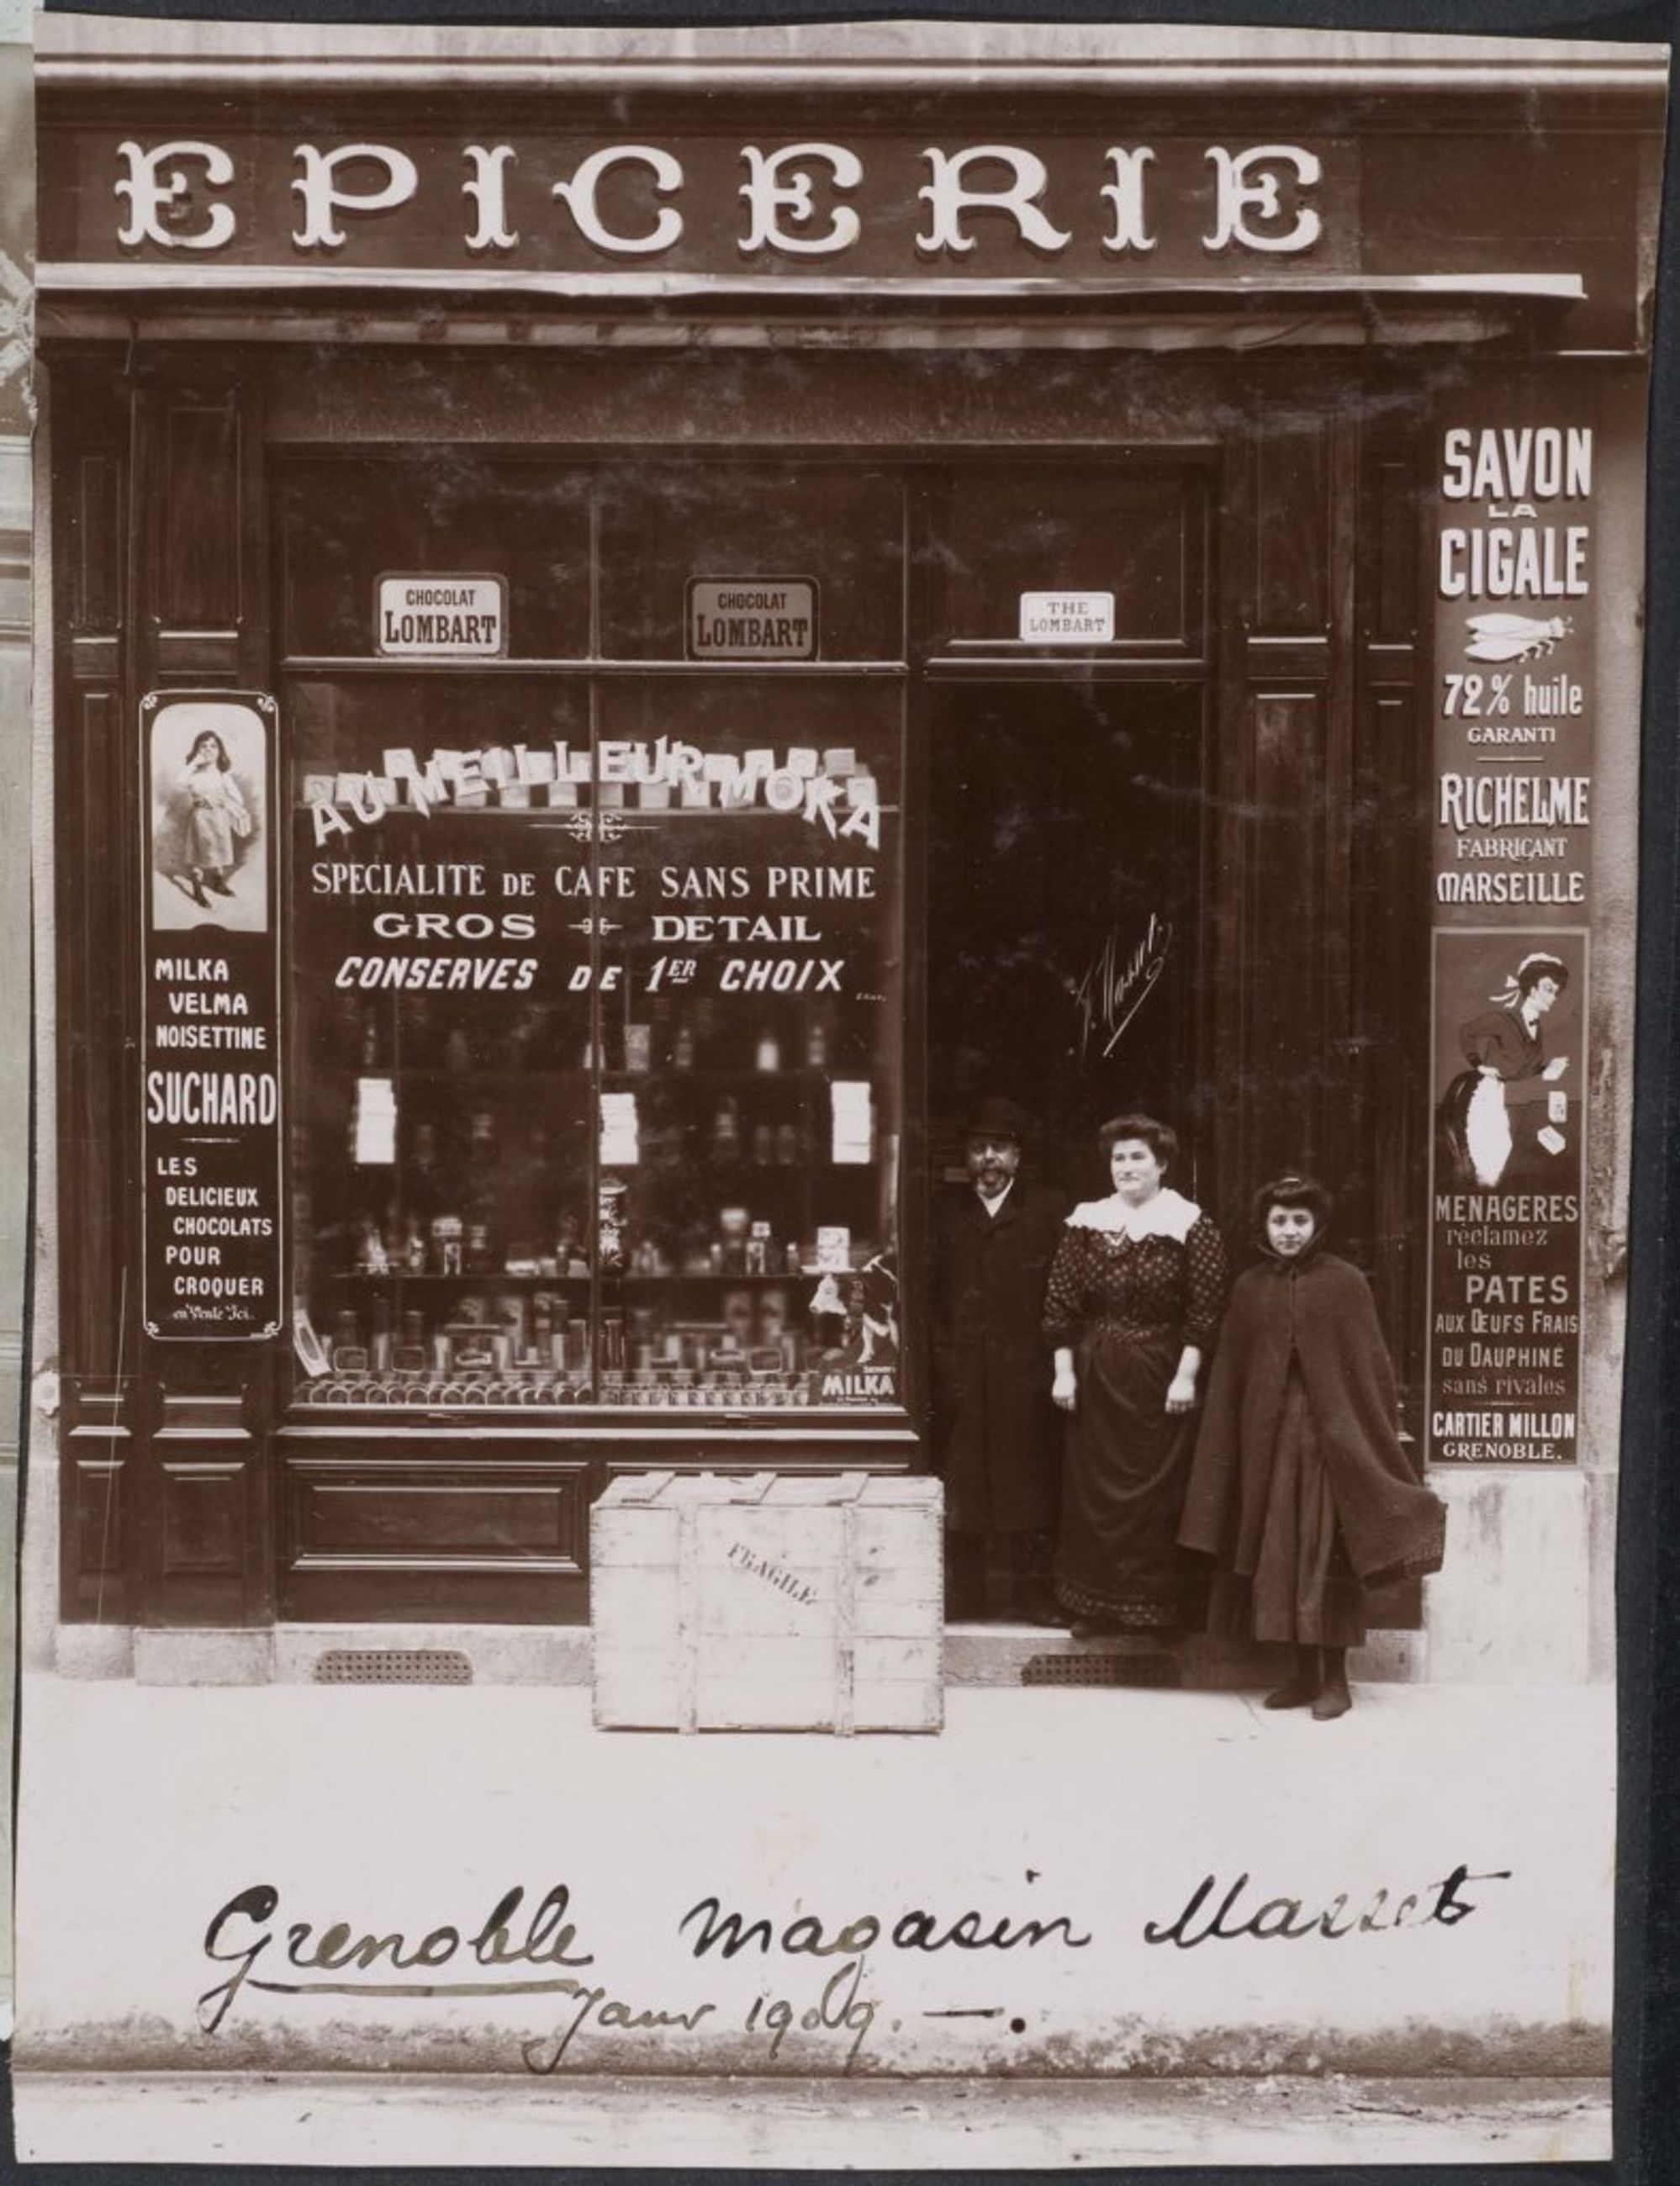 EPICERIE
CHOCOLAT
LOMBART
CHOCOLAT
LOMBART
THE
LOMBART
AU MEILLEUR MOKA
SPECIALITE DE CAFE SANS PRIME
GROS DETAIL
CONSERVES DE 1ER CHOIX
MILKA
MILKA
VELMA
NOISETTINE
SUCHARD
LES
DELICIEUX
CHOCOLATS
POUR
CROQUER
en Vente Ici
SAVON
LA
CIGALE
72% huile
GARANTI
RICHELME
FABRICANT
MARSEILLE
MENAGERES
réclamez
les
PATES
AUX ŒUFS FRAIS
DU DAUPHINÉ
sans rivales
CARTIER MILLON
GRENOBLE.
FRAGILE
Grenoble magasin Masset
Janv 1909. —.